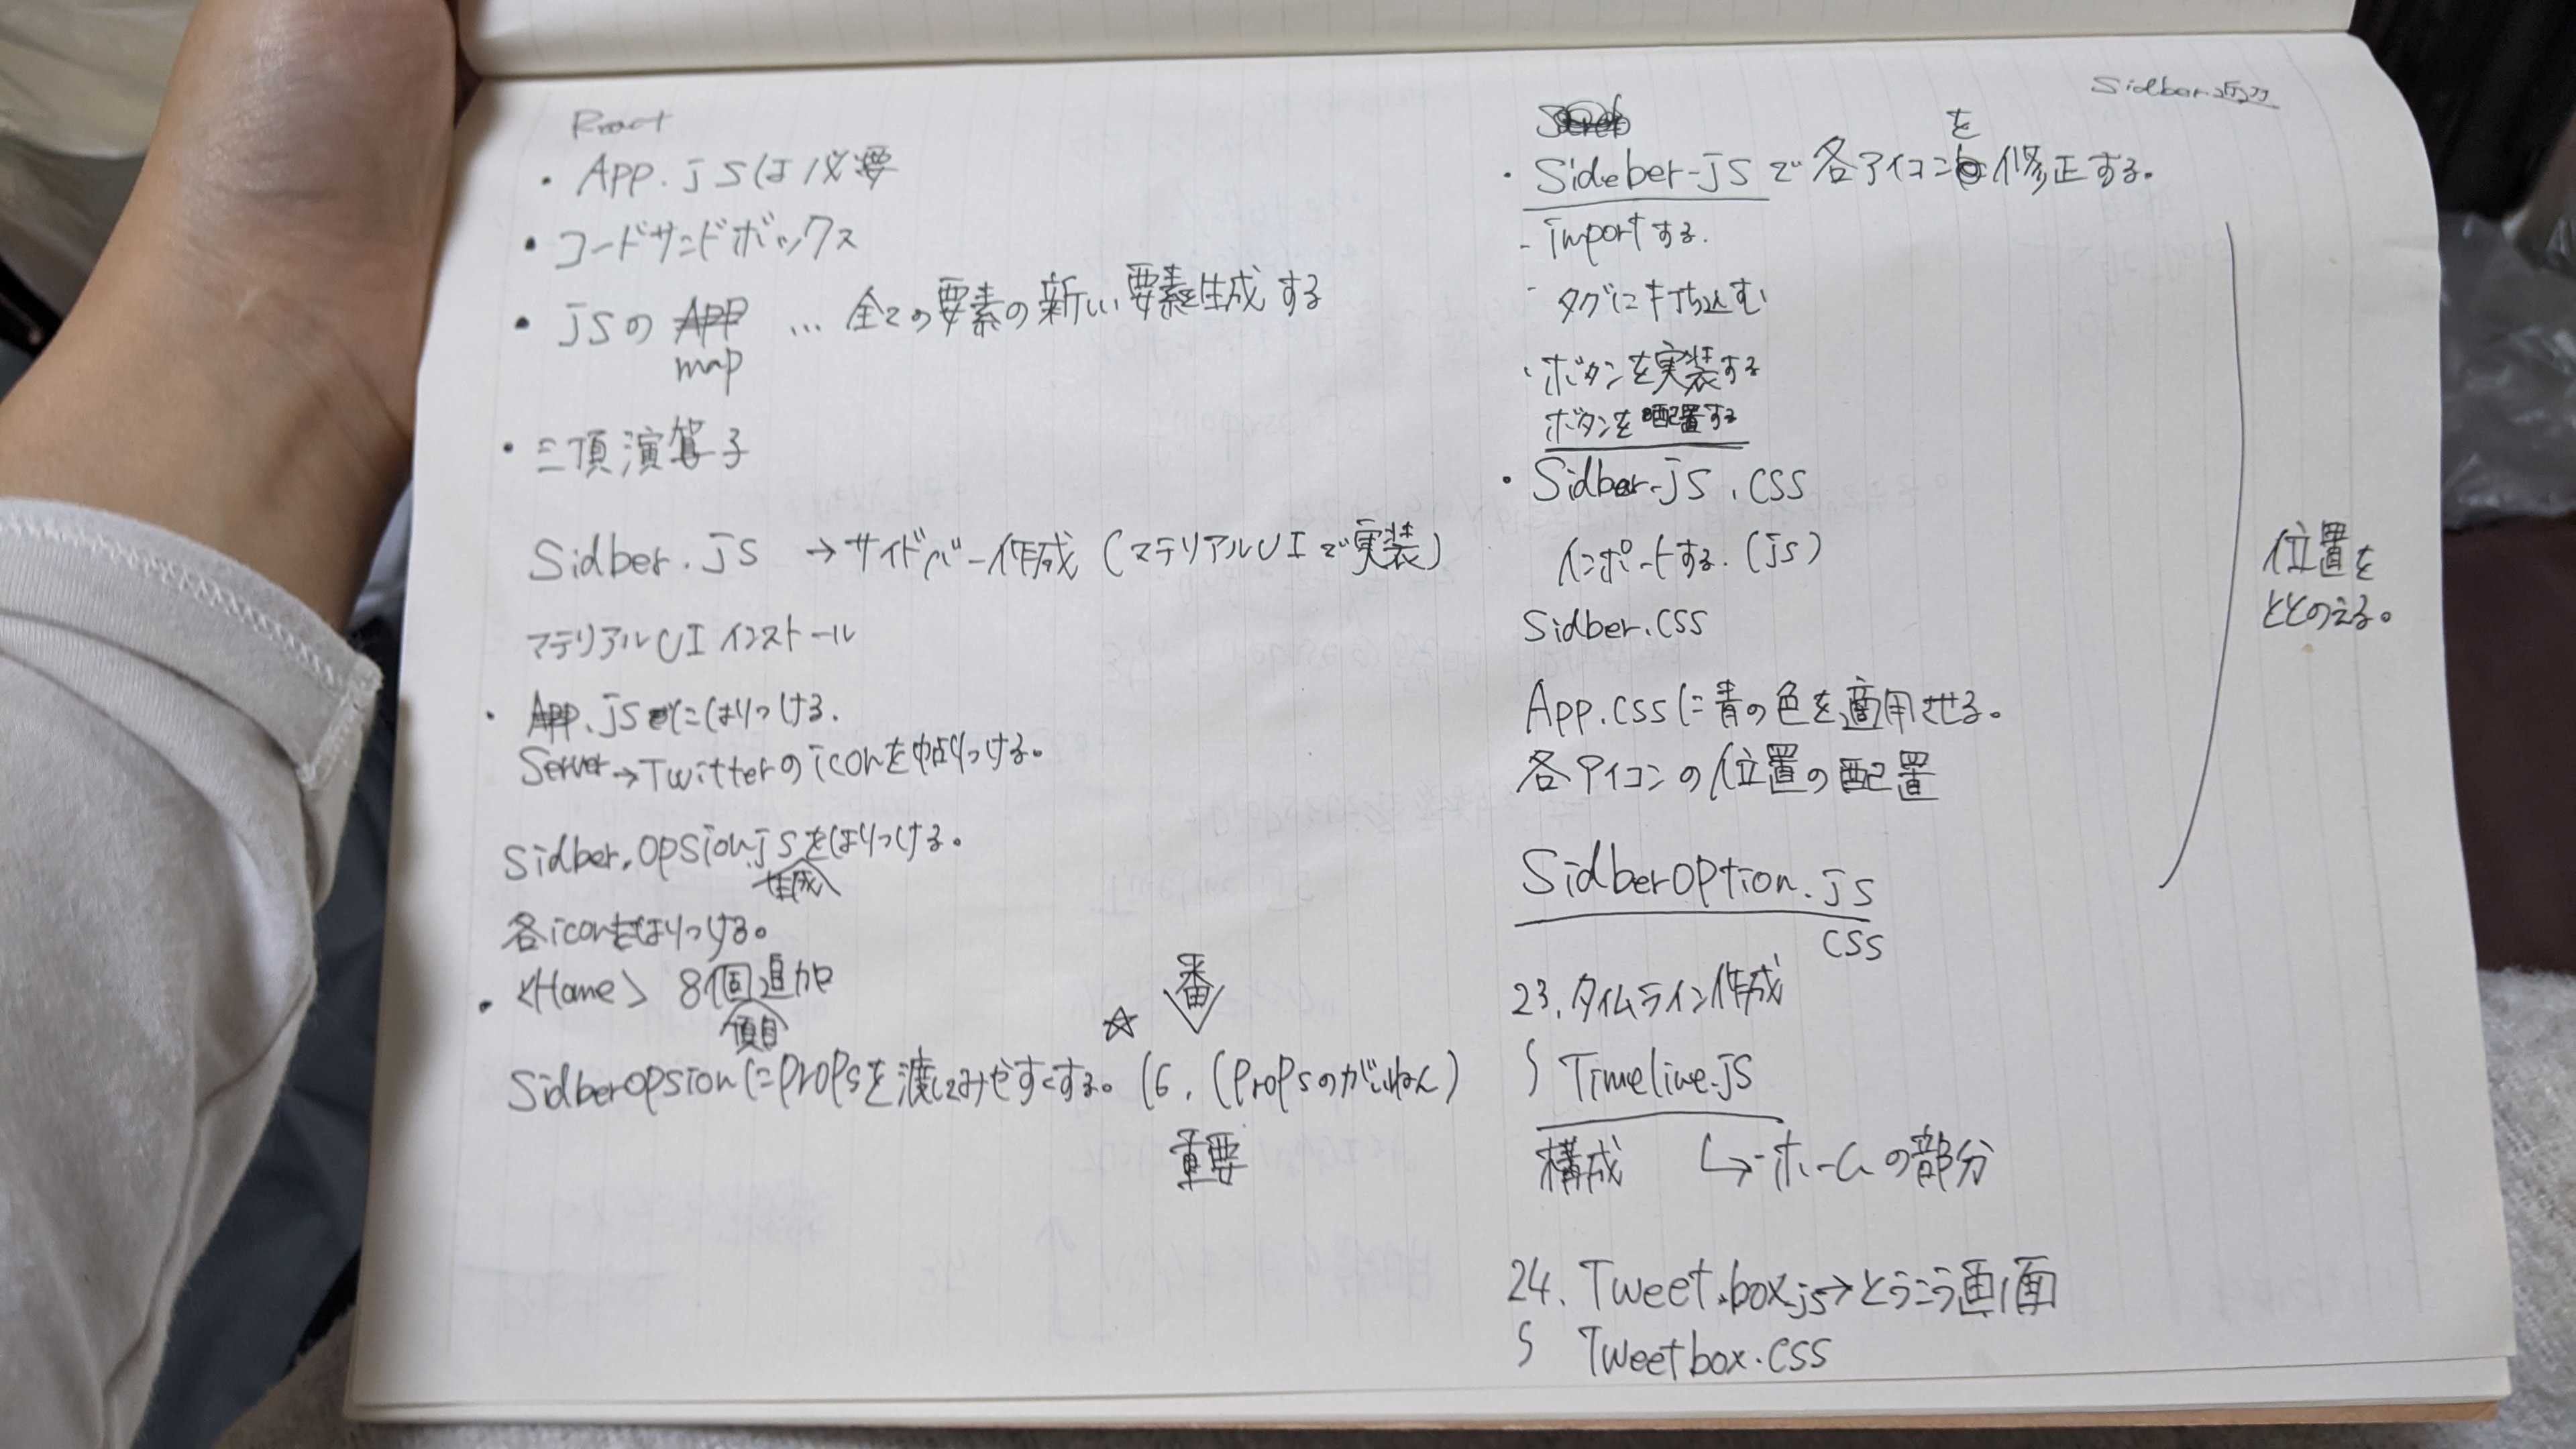 React
・App.jsは必要
・コードサンドボックス
・jsの App … 全ての要素の新しい要素を生成する
map
・三頂演算子
Sidber.js →サイドバー作成(マテリアルUIで実装)
マテリアルUIインストール
・App.jsにはりつける.
Server→Twitterのiconを帖りつける。
Sidber.opsion.jsをはりつける。
生成
各iconをはりつける。
・<Home> 8個追加
項目
番
☆
SidberopsionにPropsを渡してみやすくする。16.(Propsのがいねん)
重要
Sidber
・Sideber-jsで各アイコンを修正する.
- importする.
- タグに打ち込む
・ボタンを実装する
ボタンを配置する
・Sidber-js.css
インポートする.(js)
Sidber.css
App.cssに青の色を適用させる。
各アイコンの位置の配置
位置を
ととのえる。
SidberOption.js
css
23.タイムライン作成
Timeline.js
構成 ↳ホームの部分
24.Tweet.box.js→とうこう画面
Tweetbox.css